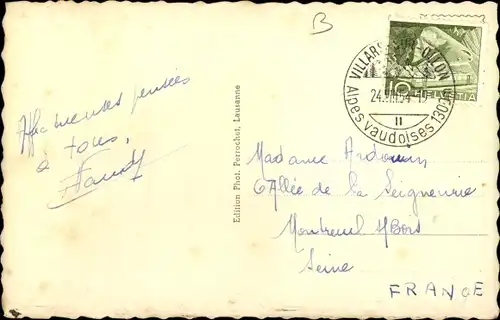 B
VILLARS
24.VIII.54-19
II
Alpes vaudoises
HELVETIA
Affectueuses pensées
à tous,
Edition Phot. Perrochet, Lausanne
Madame Ardouin
6 Allée de la Seigneurie
Montreuil s/Bois
Seine
FRANCE